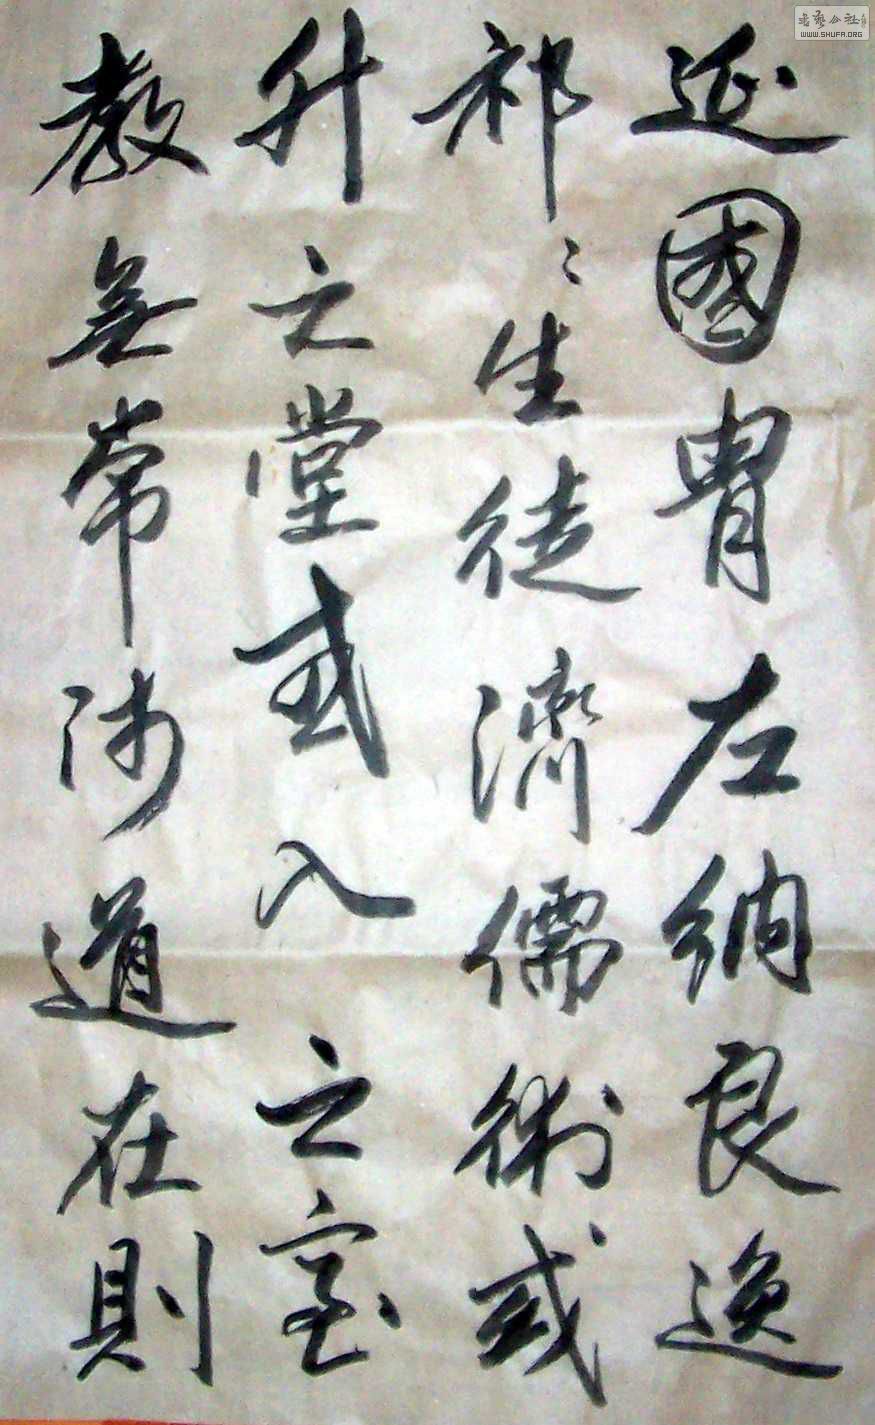 延國胄左納良逸
祁〻生徒濟儒術或
升之堂或入之室
教無常師道在則
書藝公社
WWW.SHUFA.ORG